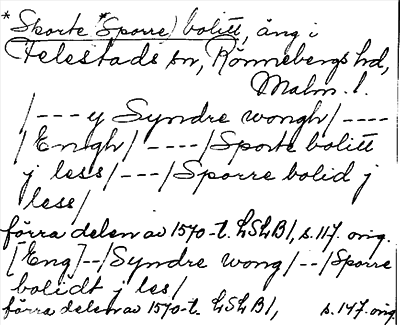 *Skorte *Sporre) bolitt, äng i
Felestads sn, Rönnebergs hd,
Malm. l.
/--- y Syndre wongh/----
/Engh/----/Sporte bolitt
j less/---/Sporre bolid j
less/
förra delen av 1570-t. LSLB1, s.117. orig.
[Eng]--/Syndre wong/--/Sporre
bolidt j les/
förra delen av 1570-t. LSLB1, s.147. orig.